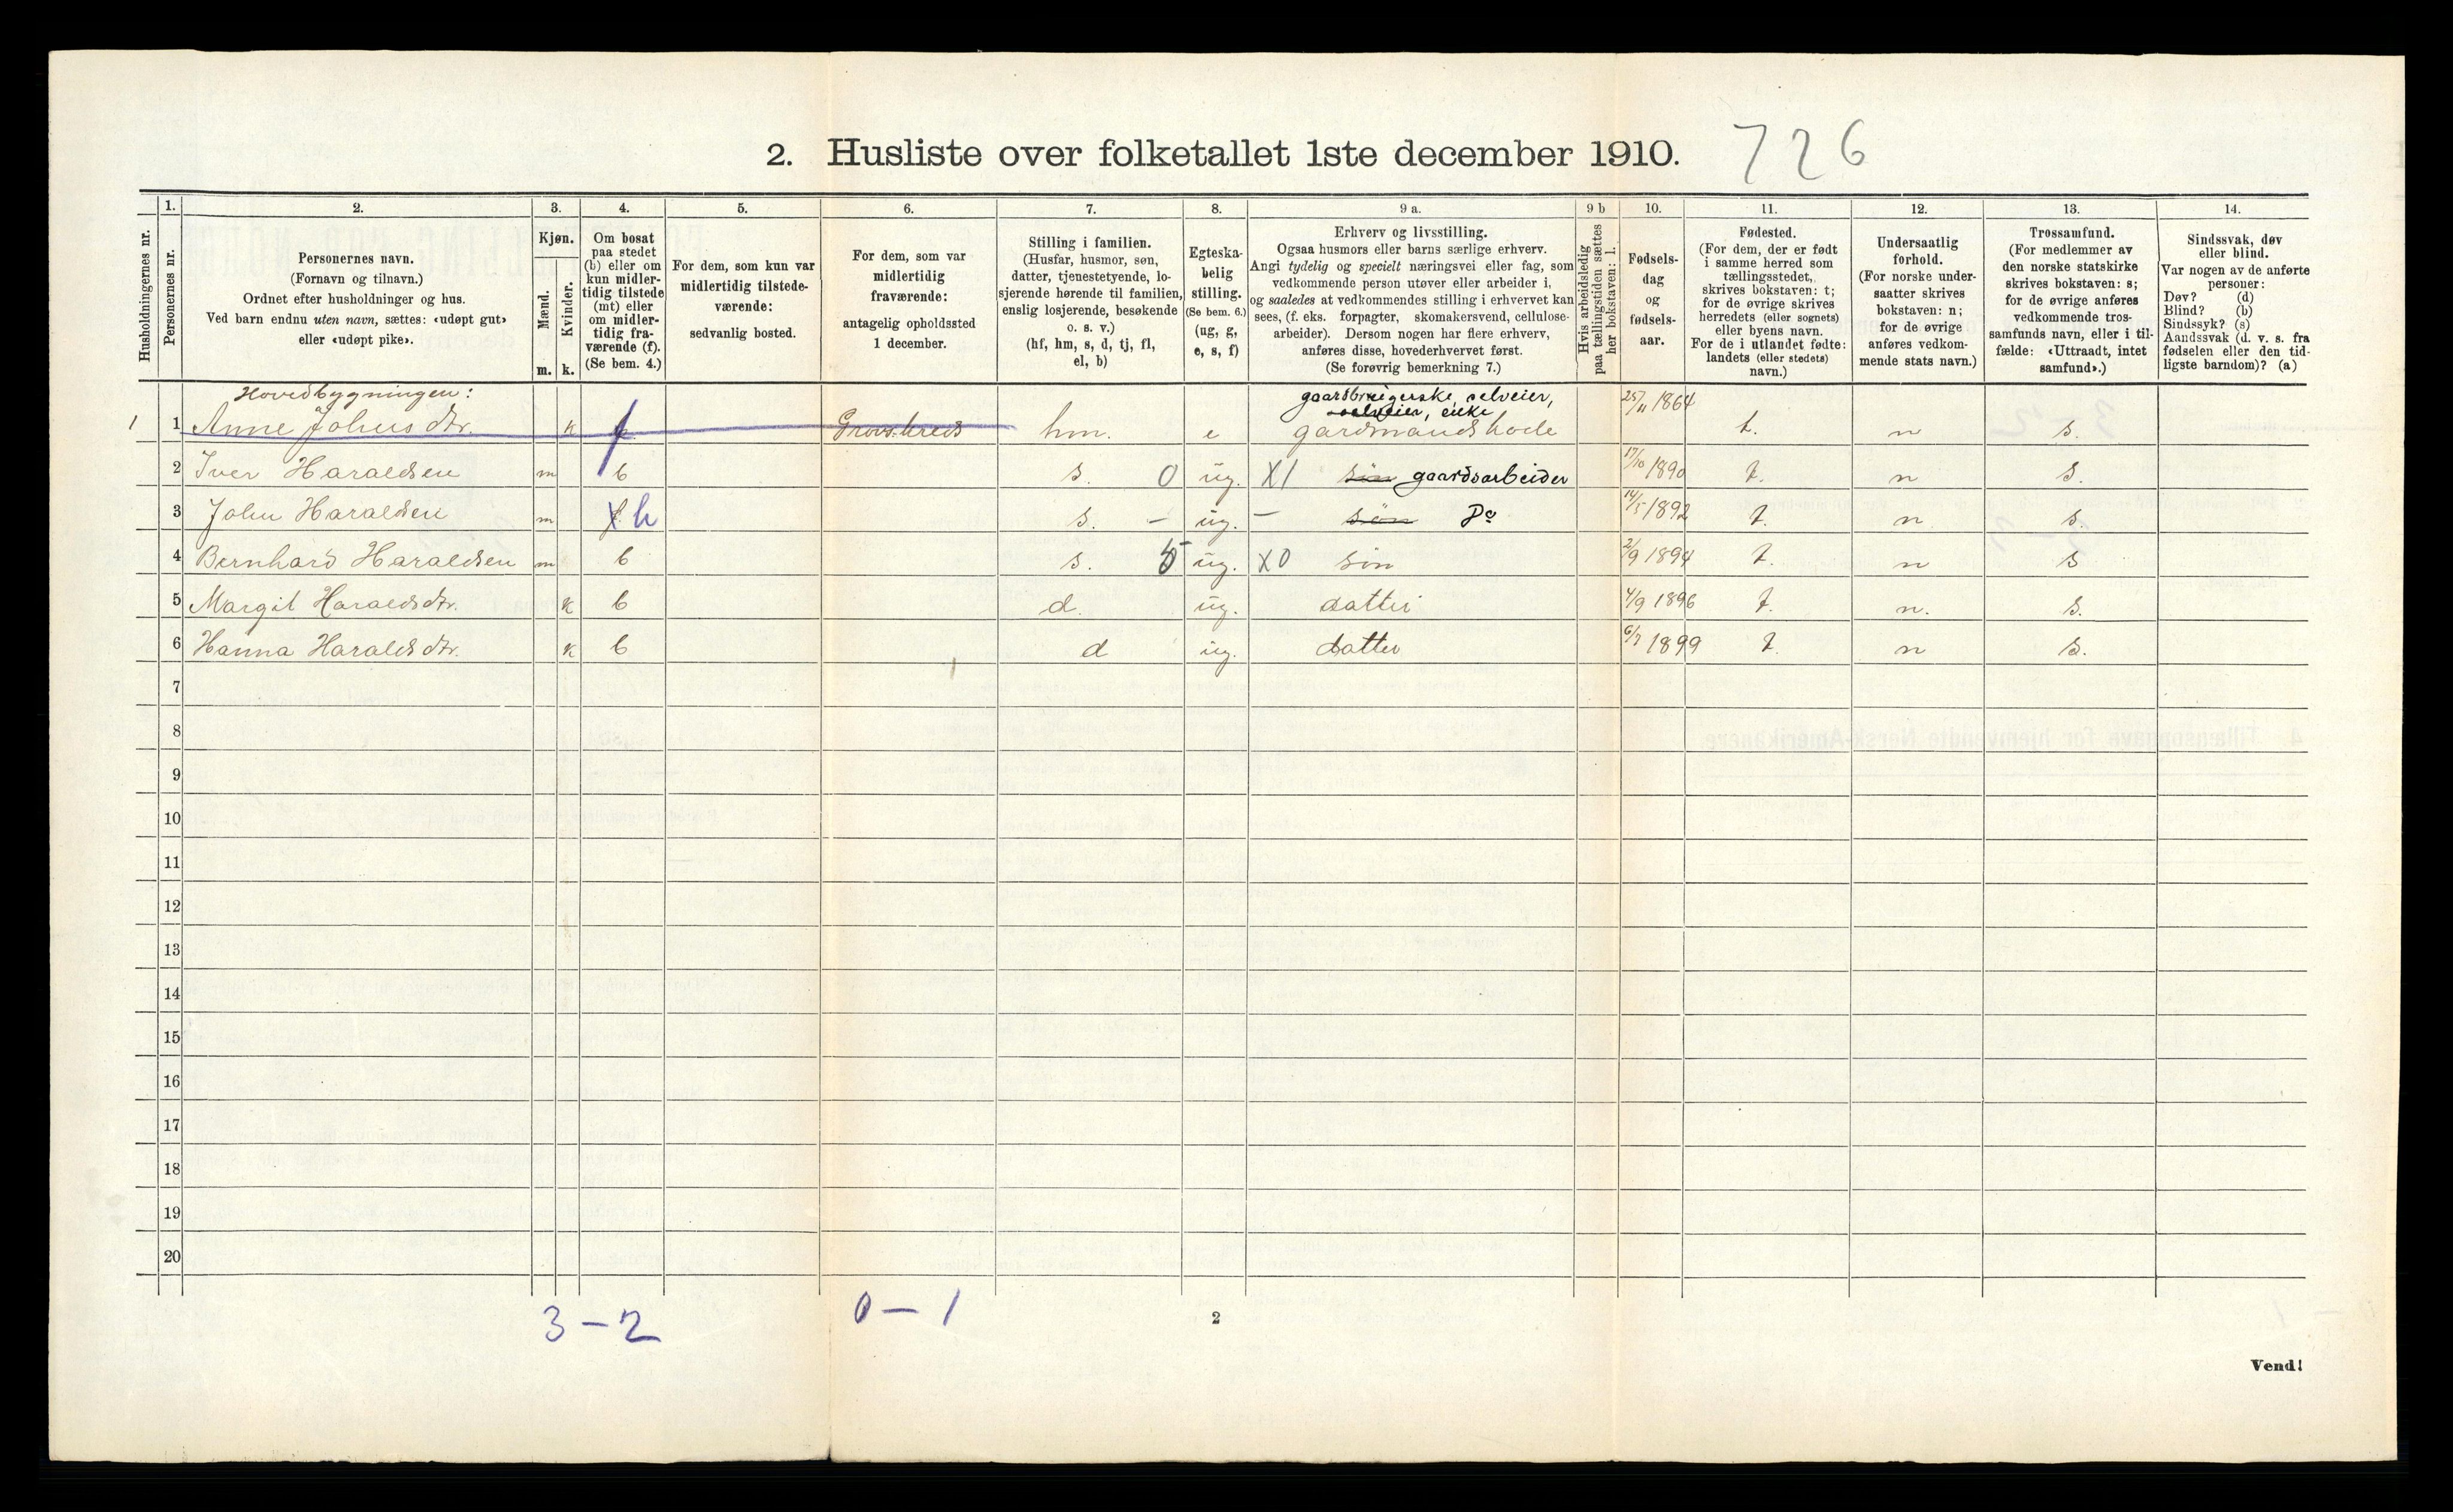 2. Husliste over folketallet 1ste december 1910. 726
Husholdningernes nr.
1.
Personernes nr.
2.
Personernes navn.
(Fornavn og tilnavn.)
Ordnet efter husholdninger og hus.
Ved barn endnu uten navn, sættes: «udøpt gut»
eller «udøpt pike».
3.
Kjøn.
Mænd.
Kvinder.
m. k.
4.
Om bosat
paa stedet
(b) eller om
kun midler-
tidig tilstede
(mt) eller
om midler-
tidig fra-
værende (f).
(Se bem. 4.)
5.
For dem, som kun var
midlertidig tilstede-
værende:
sedvanlig bosted.
6.
For dem, som var
midlertidig
fraværende:
antagelig opholdssted
1 december.
7.
Stilling i familien.
(Husfar, husmor, søn,
datter, tjenestetyende, lo-
sjerende hørende til familien,
enslig losjerende, besøkende
o. s. v.)
(hf, hm, s, d, tj, fl,
el, b)
8.
Egteska-
belig
stilling.
(Se bem. 6.)
(ug, g,
e, s, f)
9 a.
Erhverv og livsstilling.
Ogsaa husmors eller barns særlige erhverv.
Angi tydelig og specielt næringsvei eller fag, som
vedkommende person utøver eller arbeider i,
og saaledes at vedkommendes stilling i erhvervet kan
sees, (f. eks. forpagter, skomakersvend, cellulose-
arbeider). Dersom nogen har flere erhverv,
anføres disse, hovederhvervet først.
(Se forøvrig bemerkning 7.)
9 b
Hvis arbeidsledig
paa tællingstiden sættes
her bokstaven: l.
10.
Fødsels-
dag
og
fødsels-
aar.
11.
Fødested.
(For dem, der er født
i samme herred som
tællingsstedet,
skrives bokstaven: t;
for de øvrige skrives
herredets (eller sognets)
eller byens navn.
For de i utlandet fødte:
landets (eller stedets)
navn.)
12.
Undersaatlig
forhold.
(For norske under-
saatter skrives
bokstaven: n;
for de øvrige
anføres vedkom-
mende stats navn.)
13.
Trossamfund.
(For medlemmer av
den norske statskirke
skrives bokstaven: s;
for de øvrige anføres
vedkommende tros-
samfunds navn, eller i til-
fælde: «Uttraadt, intet
samfund».)
14.
Sindssvak, døv
eller blind.
Var nogen av de anførte
personer:
Døv? (d)
Blind? (b)
Sindssyk? (s)
Aandssvak (d. v. s. fra
fødselen eller den tid-
ligste barndom)? (a)
Hovedbygningen:
gaardbrugerske, selveier,
selveier, enke
1 1 Anne Johns dtr. k f hm. e gardmandskode 25/11 1864 t. n s.
2 Iver Haraldsen m b s. 0 ug. X1 søn gaardsarbeider 17/10 1890 t. n s.
3 John Haraldsen m f b s. – ug. – søn Do 14/5 1892 t. n s.
4 Bernhard Haraldsen m b s. 5 ug. X0 søn 2/9 1894 t. n s
5 Margit Haralds dtr. k b d. ug. datter 4/9 1896 t. n. s.
6 Hanna Haralds dtr. k b d ug. datter 6/7 1899 t. n s.
7
8
9
10
11
12
13
14
15
16
17
18
19
20
3 – 2 0 – 1
2
Vend!